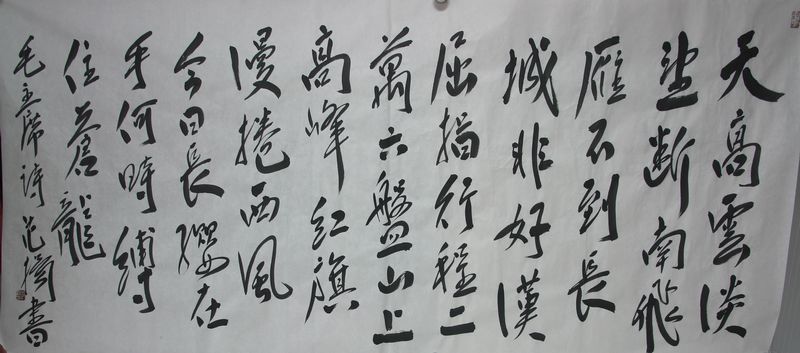 天高雲淡
望断南飛
雁不到長
城非好漢
屈指行程二
萬六盤山上
高峰红旗
漫捲西風
今日長纓在
手何時縛
住蒼龍
毛主席詩 范 書